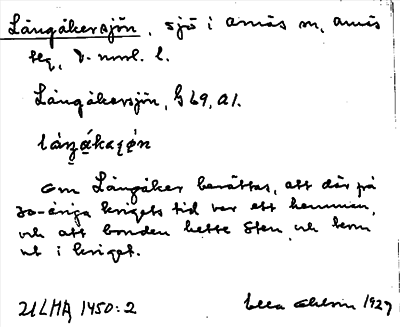 Långåkersjön, sjö i Arnäs sn, Arnäs
tlg, V. norrl. l.
Långåkersjön, G 69, A1.
Om Långåker berättas, att där på
30-åriga krigets tid var ett hemman,
och att bonden hette Sten och kom
ut i kriget.
ULMA 1450:2 Ella Ohlson 1927